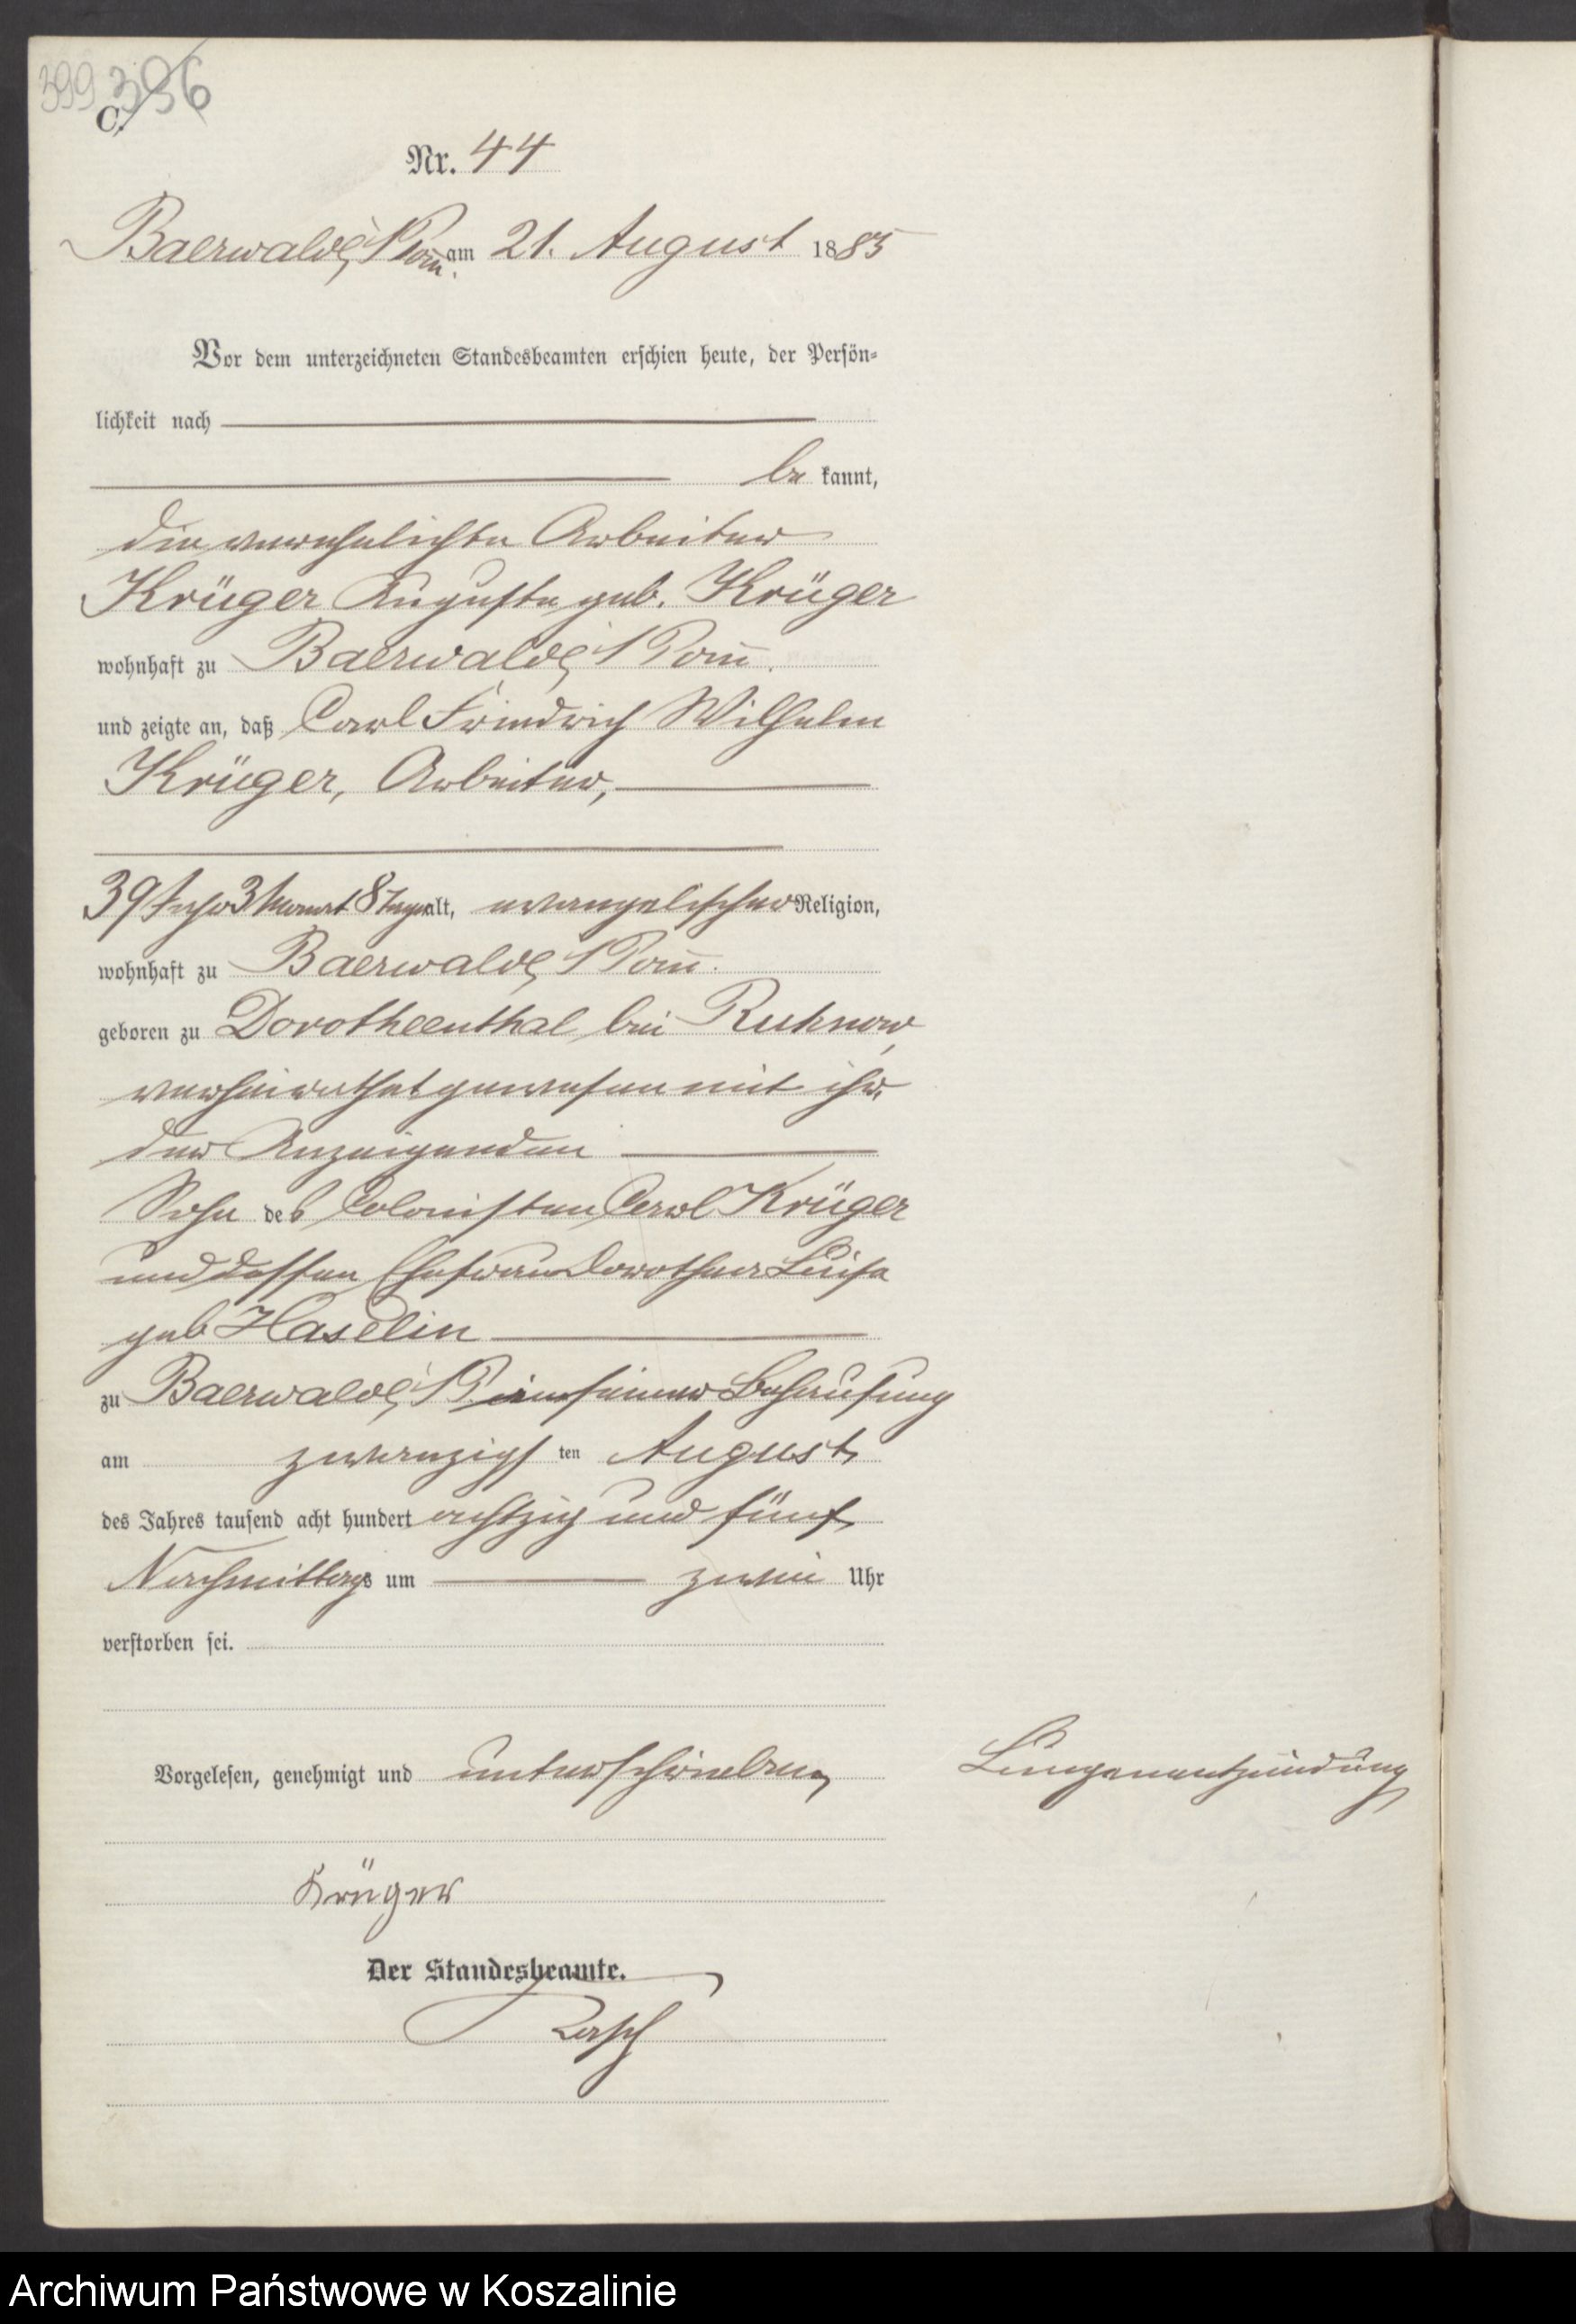 399 396
C.
Nr. 44
Baerwalde, Pom. am 21. August 1885
Vor dem unterzeichneten Standesbeamten erschien heute, der Persön-
lichkeit nach
be kannt,
die verehelichte Arbeiter
Krüger Auguste geb. Krüger
wohnhaft zu Baerwalde, Pom.
und zeigte an, daß Carl Friedrich Wilhelm
Krüger, Arbeiter,
39 Jahr 3 Monat 8 Tage alt, evangelischer Religion,
wohnhaft zu Baerwalde, Pom.
geboren zu Dorotheenthal bei Ruhnow,
verheirathet gewesen mit ihr,
der Anzeigenden
Sohn des Colonisten Carl Krüger
und dessen Ehefrau Dorothea Luise
geb Haselin
zu Baerwalde, P. in seiner Behausung
am zwanzigs ten August
des Jahres tausend acht hundert achtzig und fünf
Nachmittags um zwei Uhr
verstorben sei.
Vorgelesen, genehmigt und unterschrieben
Lungenentzündung
Krüger
Der Standesbeamte.
Archiwum Państwowe w Koszalinie